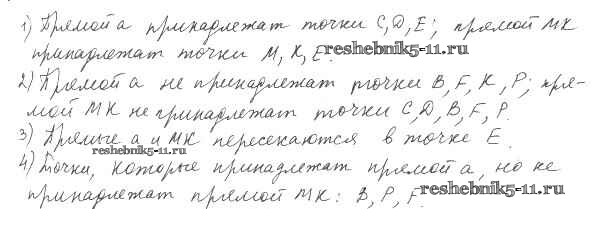 1) Прямой а принадлежат точки C, D, E; прямой MK
принадлежат точки M, K, E.
reshebnik5-11.ru
2) Прямой а не принадлежат точки B, F, K, P; пря-
мой MK не принадлежат точки C, D, B, F, P.
3) Прямые а и MK пересекаются в точке E.
reshebnik5-11.ru
4) Точки, которые принадлежат прямой а, но не
принадлежат прямой MK: B, P, F.
reshebnik5-11.ru